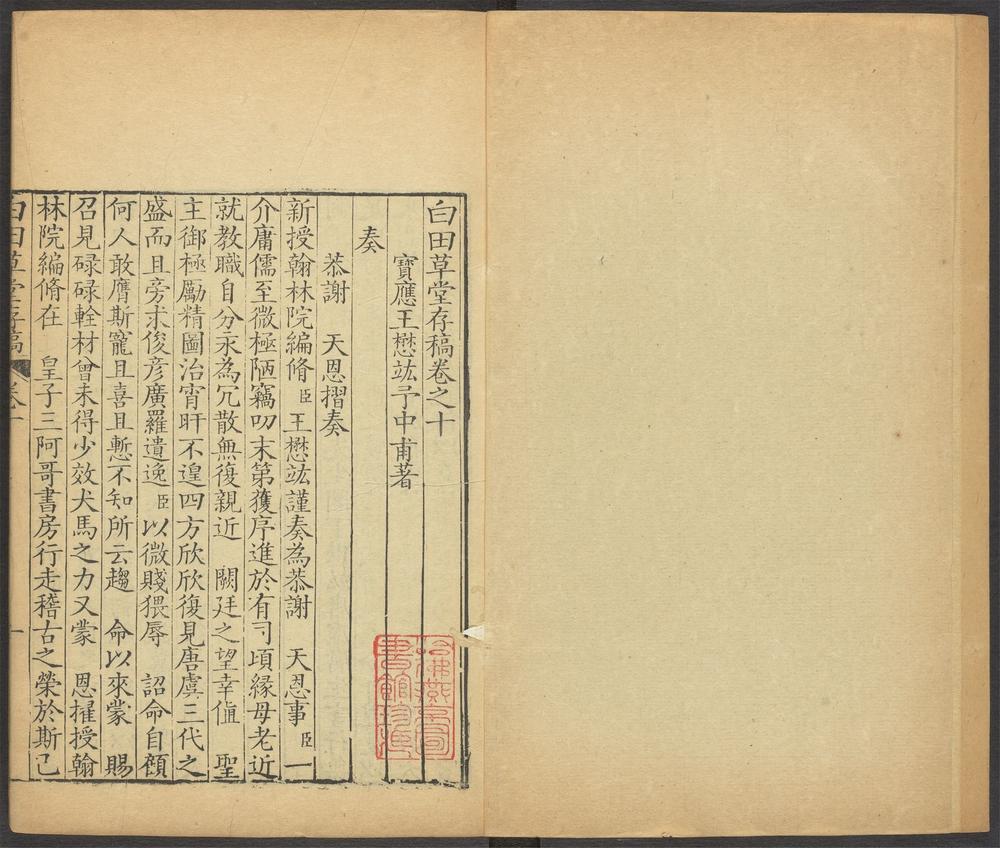 白田草堂存稿卷之十
寶應王懋竑予中甫著
奏
恭謝 天恩摺奏
新授翰林院編脩臣王懋竑謹奏為恭謝 天恩事臣一
介庸儒至微極陋竊叨末第獲序進於有司頃縁母老近
就教職自分永為冗散無復親近 闕廷之望幸值 聖
主御極勵精圖治宵旰不遑四方欣欣復見唐虞三代之
盛而且旁求俊彦廣羅遺逸臣以微賤猥辱 詔命自顧
何人敢膺斯寵且喜且慙不知所云趨 命以來蒙 賜
召見碌碌輇材曾未得少效犬馬之力又蒙 恩擢授翰
林院編脩在 皇子三阿哥書房行走稽古之榮於斯已
白田草堂存稿 卷十 一
哈佛燕京圖書館珍藏